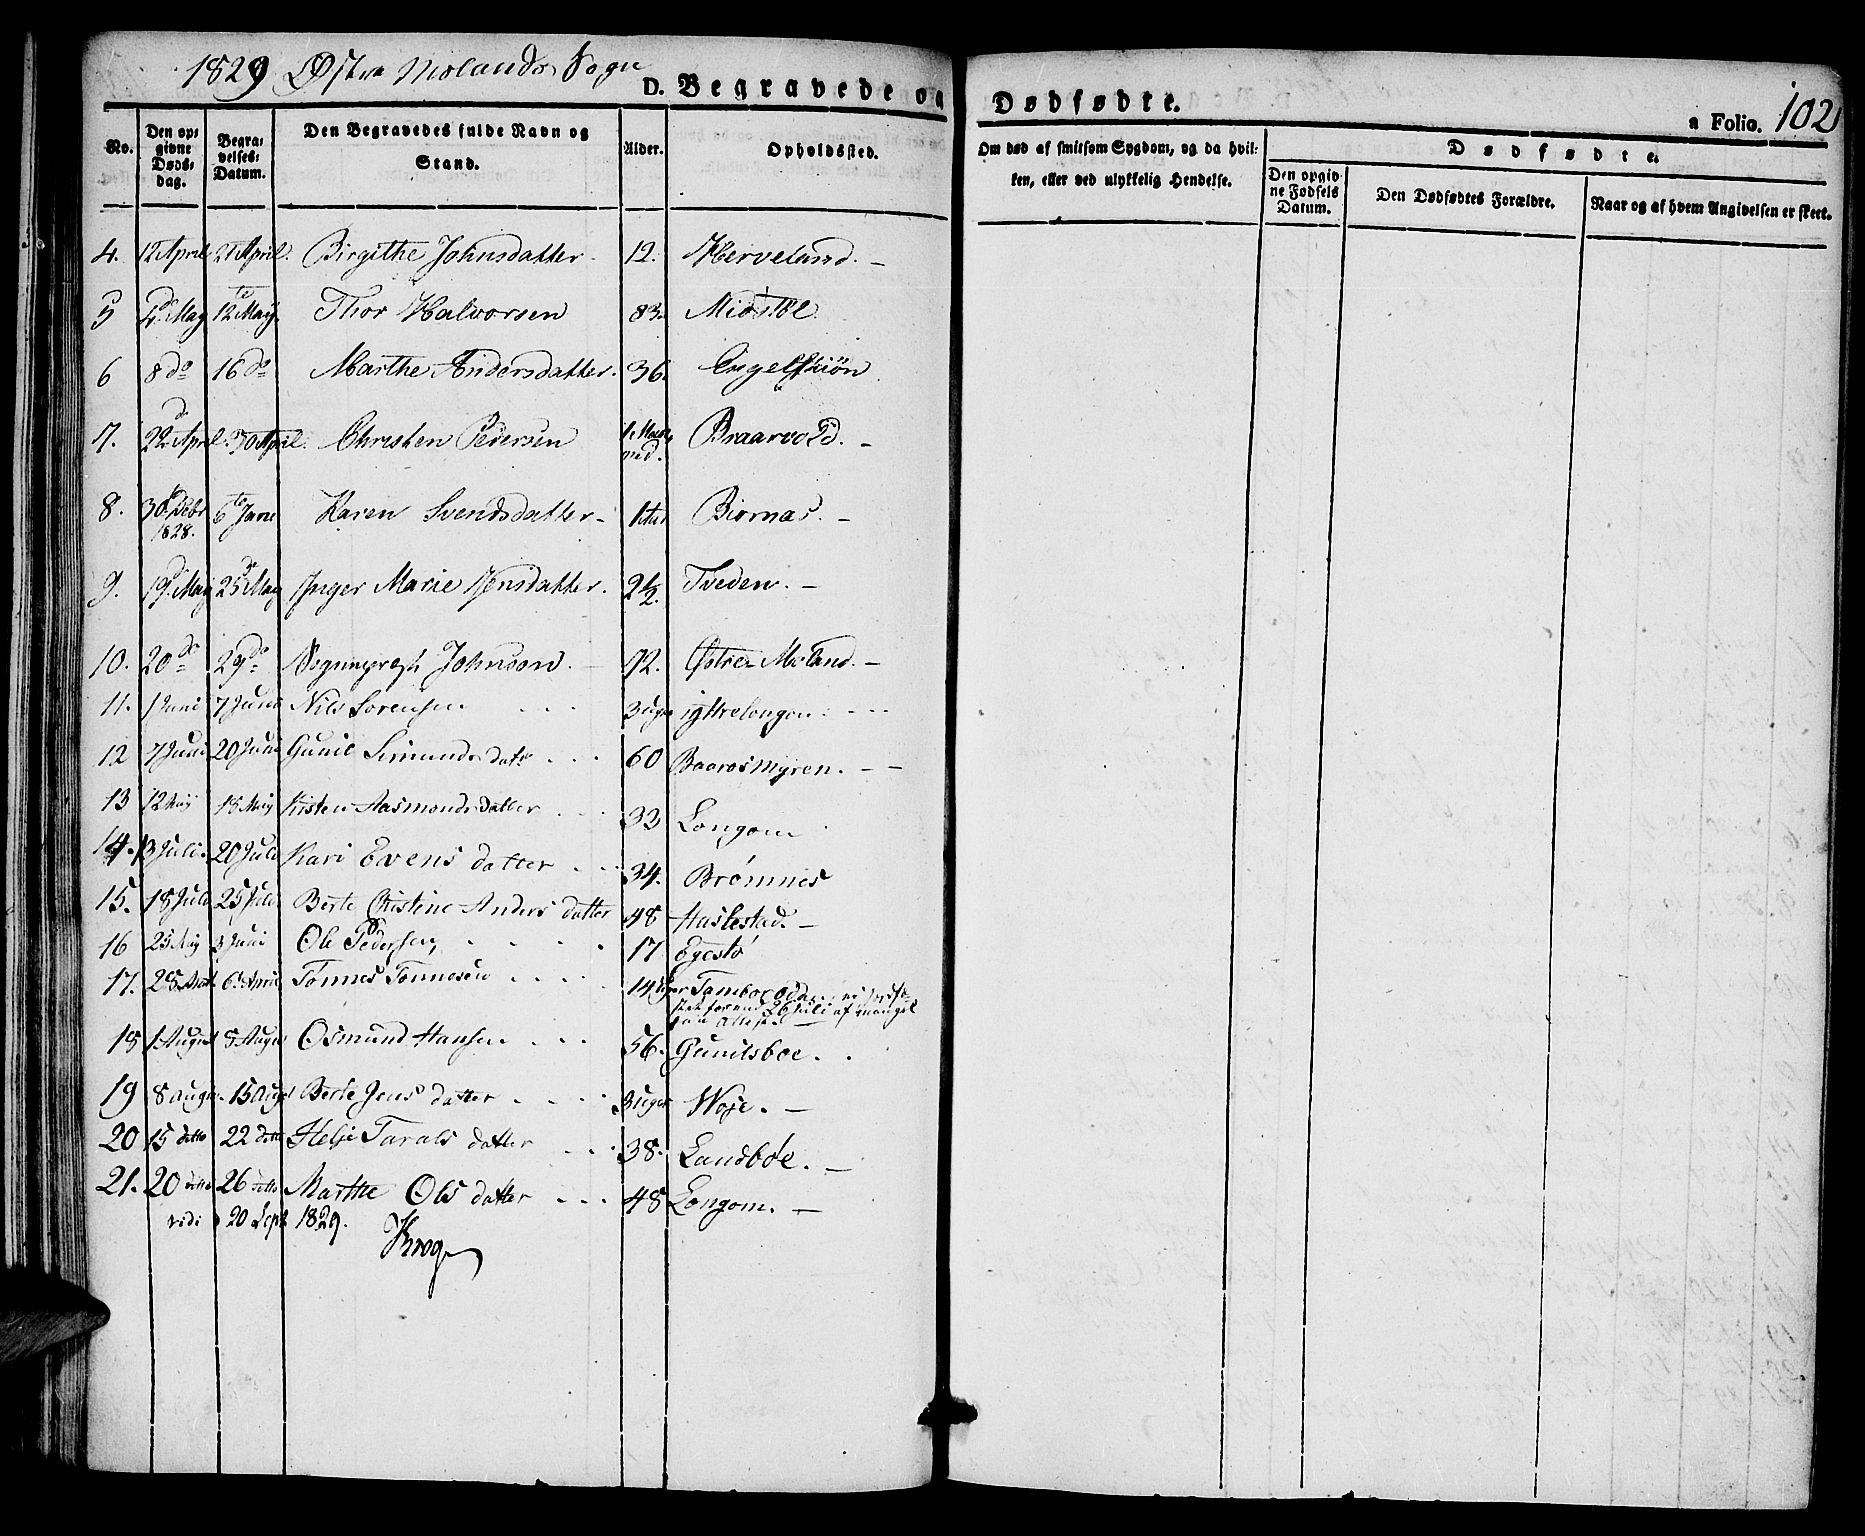 1829 Østre Molands Sogn
D. Begravede og Dødfødte.
a Folio. 102
No. Den opgivne Døds-dag. Begravelses-Datum. Den Begravedes fulde Navn og Stand. Alder. Opholdssted. Om død af smitsom Sygdom, og da hvilken, eller ved ulykkelig Hendelse. Dødfødte. Den opgivne Fødsels Datum. Den Dødfødtes Forældre. Naar og af hvem Angivelsen er skeet.
4. 12 April 21 April. Birgithe Johnsdatter 12. Herveland. -
5 4de May 12te May. Thor Halvorsen 83. Midstøl
6 8 do 16 do Marthe Andersdatter. 36. Engelskiön
7. 22de April. 30 April. Christen Pedersen 1 Maaned. Braarvold. -
8. 30 Debr 1828. 6te Janr Karen Svendsdatter - 1 Aar Biornas. -
9. 19de May 25de May Inger Marie Jensdatter. 2 1/2. Tveden. -
10. 20 do 29 do Johnson. 92. Østre Moland. -
11. 1 Juni 7 Juni Nils Sorensen 3 uger ÿttrelongon.
12 7 Juni 20 Juni Gunil Simunds datr 60 Baarosmyren. - -
13 12 Maÿ 18 Maÿ Kisten Aasmondsdatter 33 Longom
14. 13 Juli. 20 Juli Kari Evens datter 34. Brømnes
15. 18 Juli 25 Juli Berte Cristine Anders datter 48 Haslestad. -
16 25 Maÿ 3 Juni Ole Pedersen, 17 Egestø
17. 28 6 April Tønnes Tønnesen 14 uger Tamborodden 26 Juli af mangel paa attest. -
18 1 August 8 August Osmund Hansen 56. Gunilsboe.
19 8 August. 15 August Berte Jens datter 3 uger Woje. -
20 15 detto 22 detto Helje Tarals datter 38. Landbøe. -
21. 20 detto 26 detto Marthe Ols datter 48 Longom. -
vidi 20 Sept 1829.
Krog